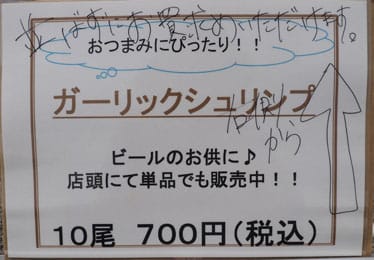 並ばずにお買い求めいただけます。
おつまみにぴったり！！
ガーリックシュリンプ
から
ビールのお供に♪
店頭にて単品でも販売中！！
10尾 700円（税込）